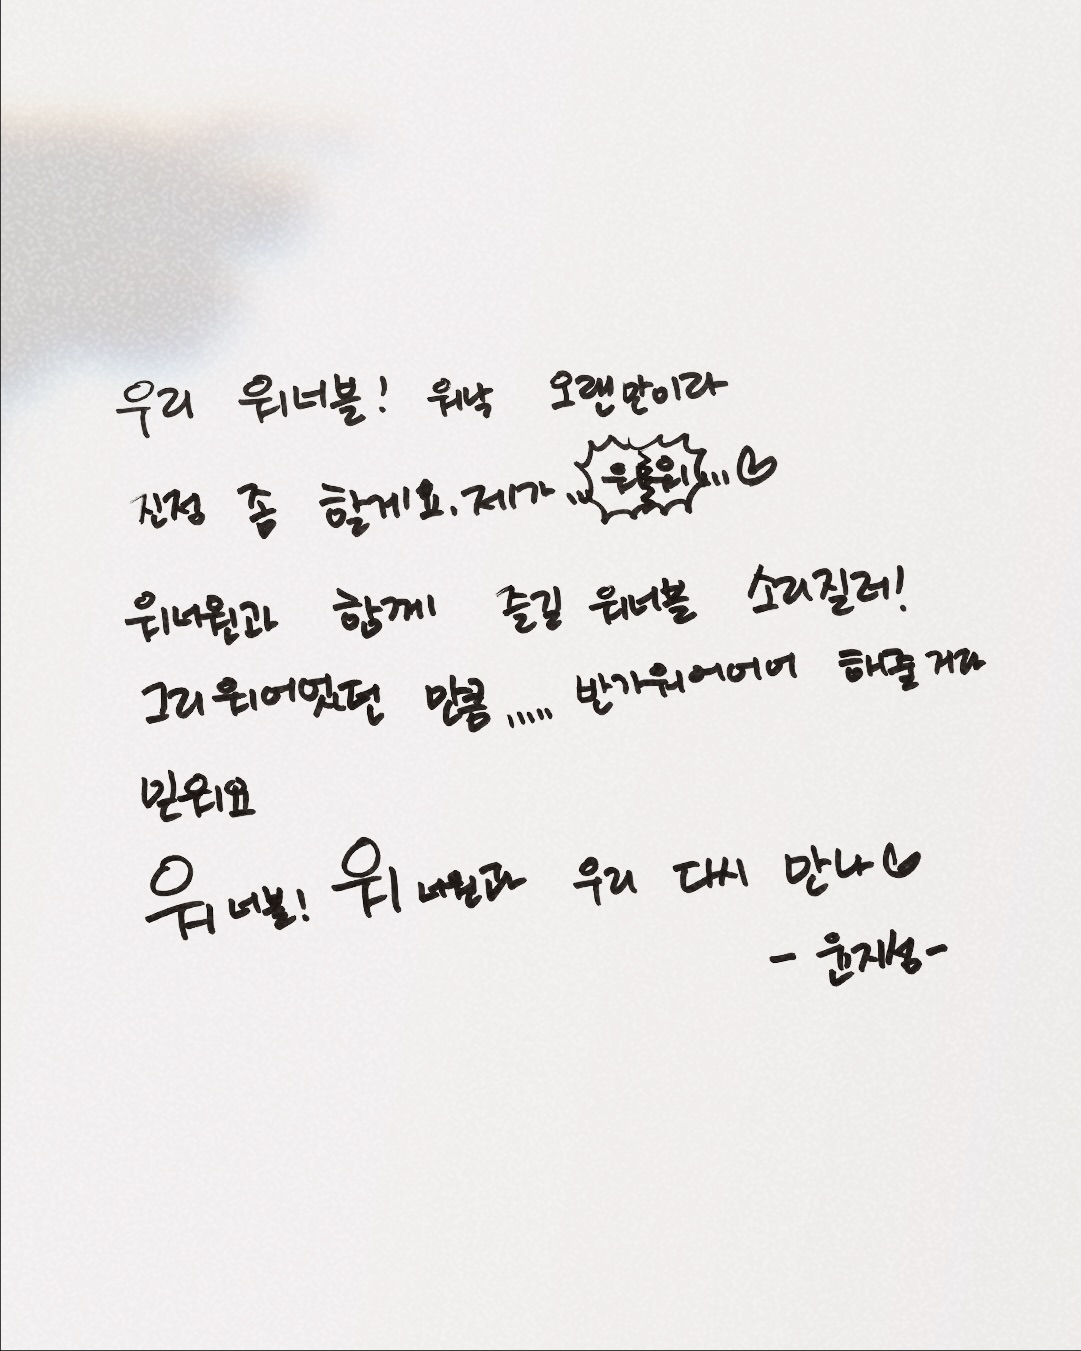 우리 워너블! 워낙 오랜만이라
진정 좀 할게요. 제가... 우롤워...♡
워너원과 함께 즐길 워너블 소리질러!
그리워어었던 만큼..... 반가워어어어 해줄거라
믿워요
워너블! 워너원과 우리 다시 만나♡
- 윤지성 -